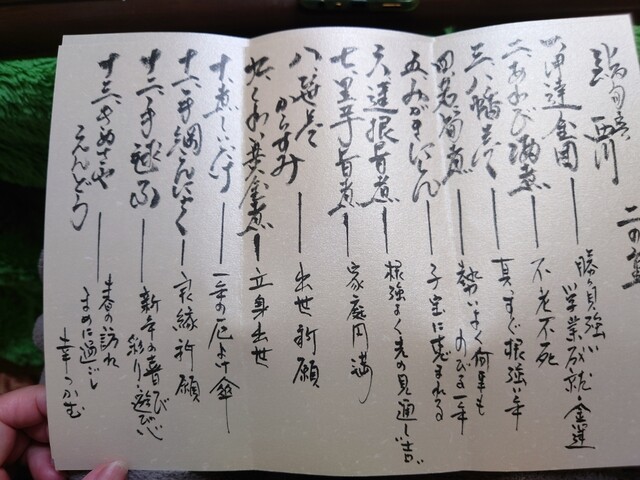 二の重
西川
一、伊達金団 ― 勝負強い
学業成就・金運
二、あわび福煮 ― 不老不死
三、八幡まく ― 真すぐ根強い年
四、若筍煮 ― 勢いよく何事も
のびる一年
五、みがきにしん ― 子宝に恵まれる
六、蓮根旨煮 ― 根強く先の見通し吉
七、里芋旨煮 ― 家庭円満
八、
からすみ ― 出世祈願
九、くわい黄金煮 ― 立身出世
十、煮しいたけ ― 一年の厄よけ傘
十一、手綱こんにゃく ― 良縁祈願
十二、手毬ふ ― 新年の喜び
彩り遊び
十三、きぬさや
えんどう ― 春の訪れ
まめに過ごし
幸つかむ